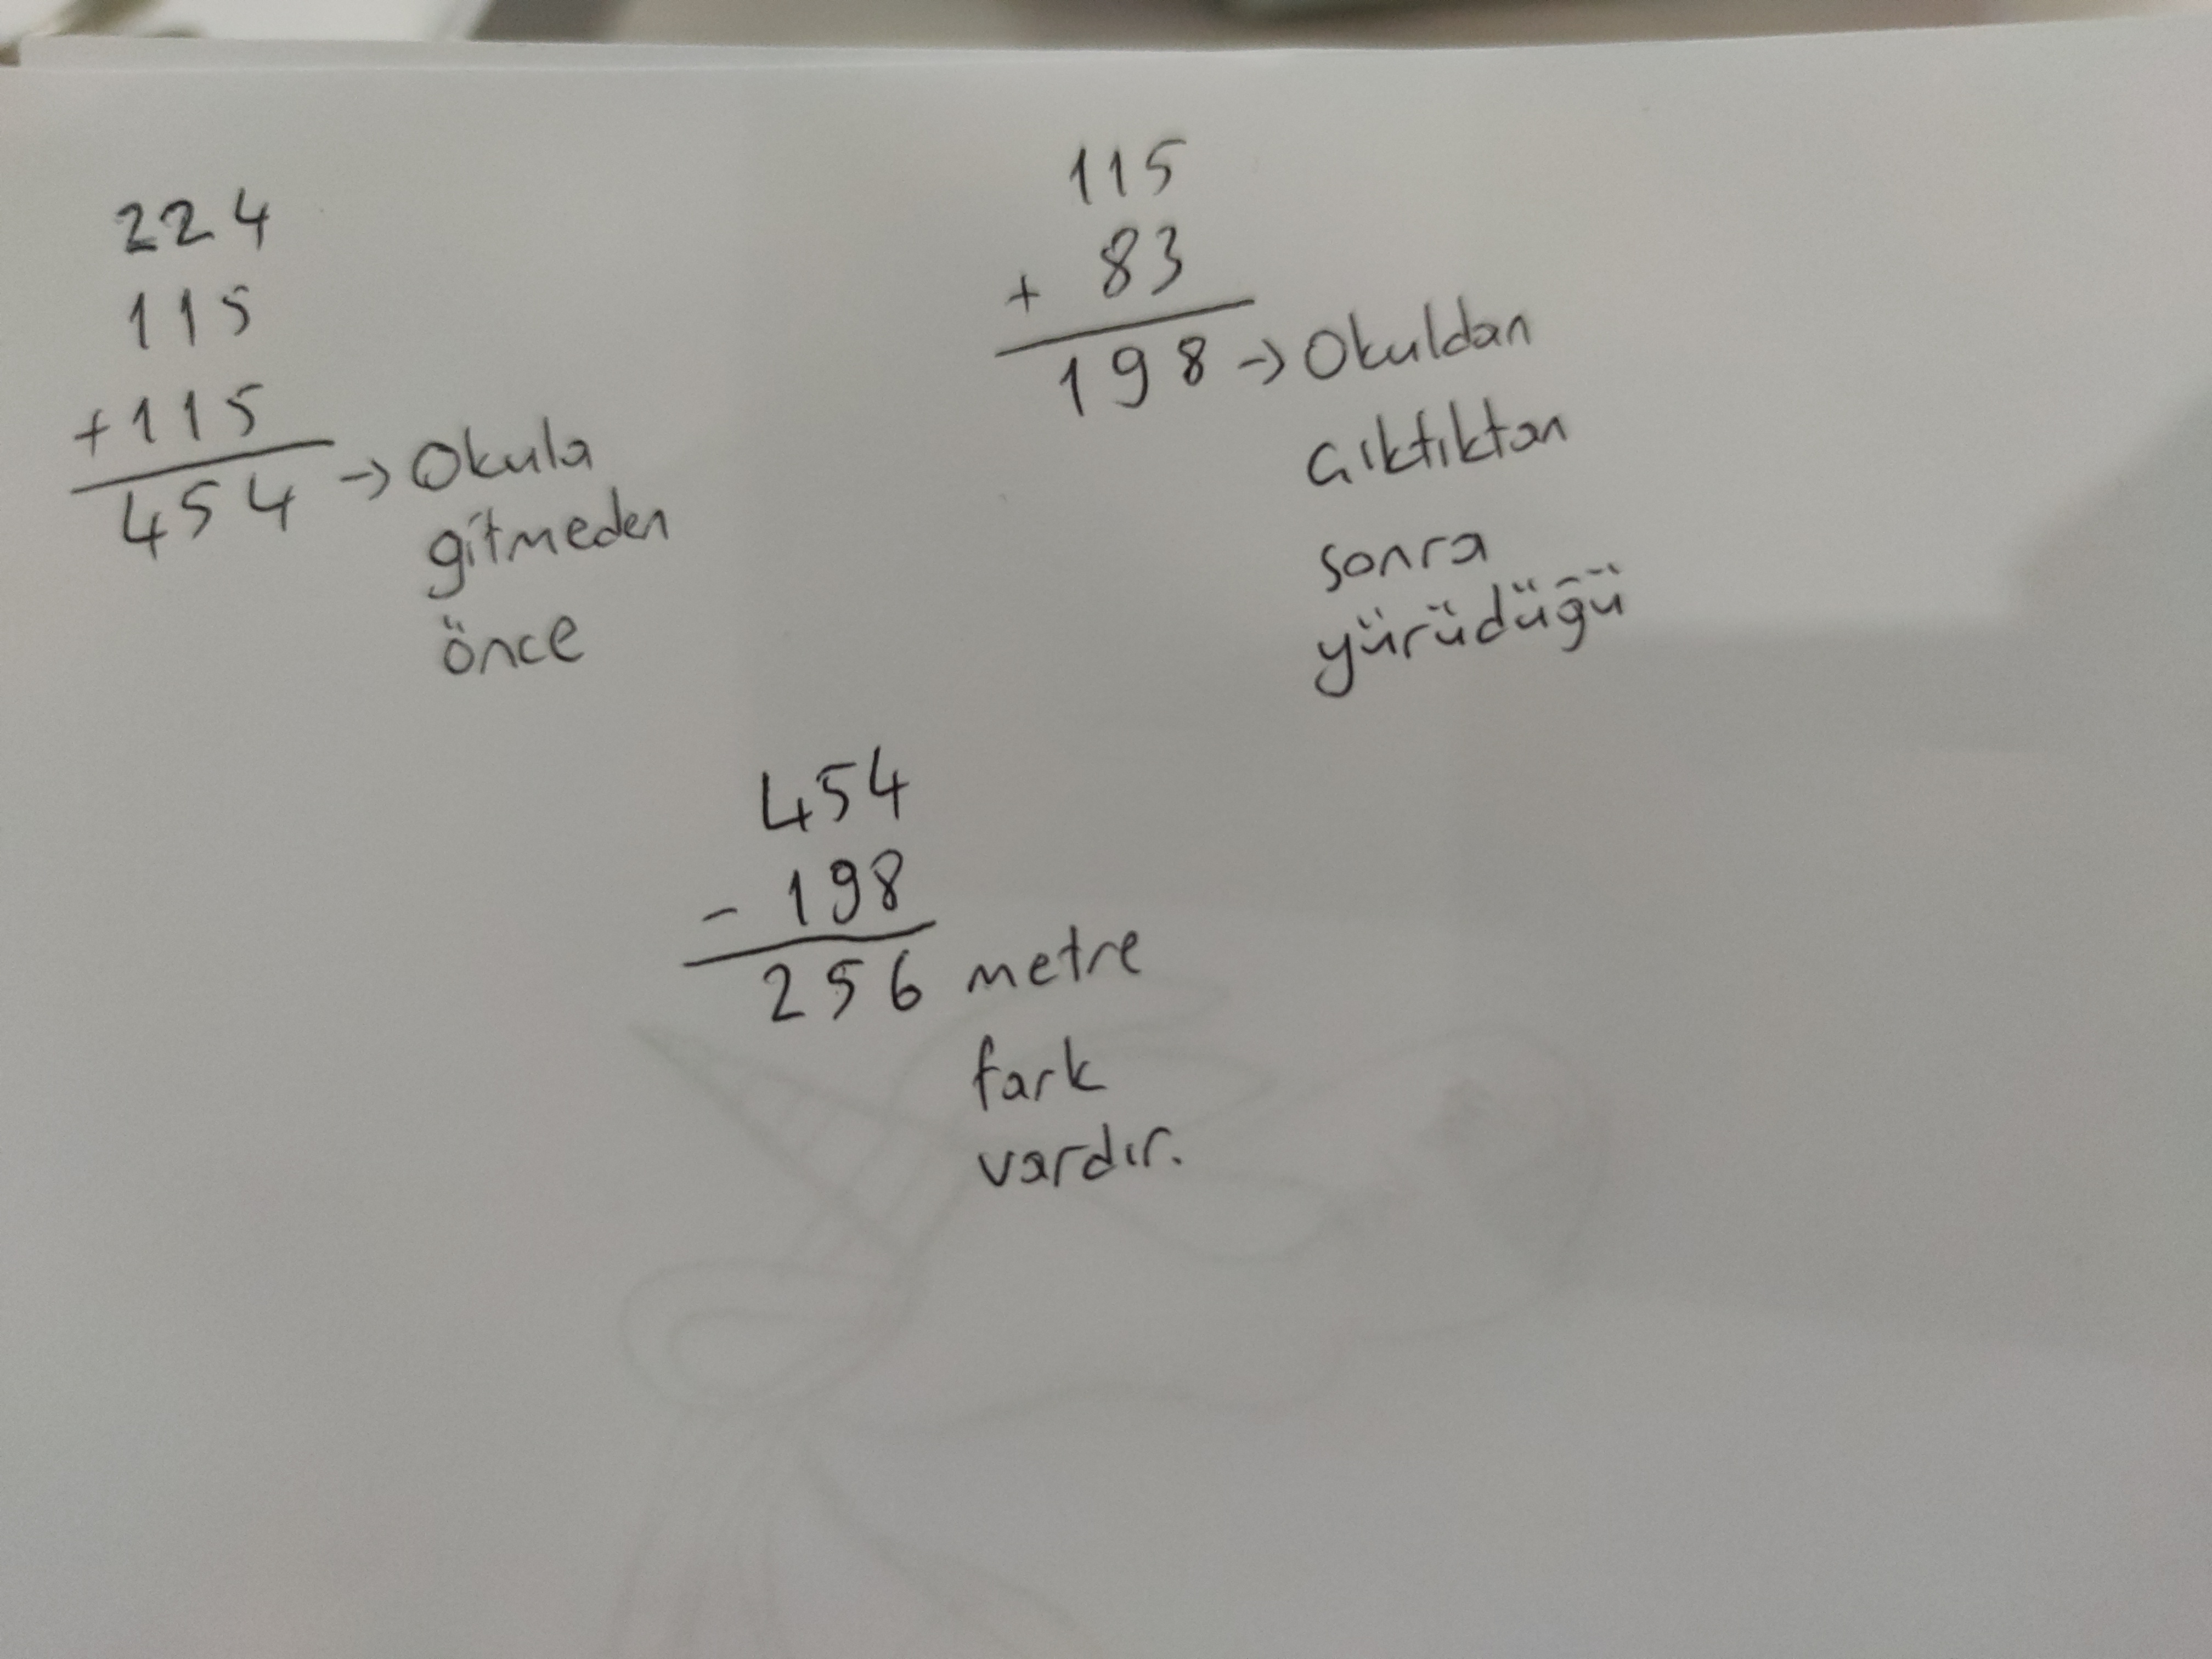 224
115
+115
454 → Okula
gitmeden
önce
115
+ 83
198 → Okuldan
çıktıktan
sonra
yürüdüğü
454
- 198
256 metre
fark
vardır.